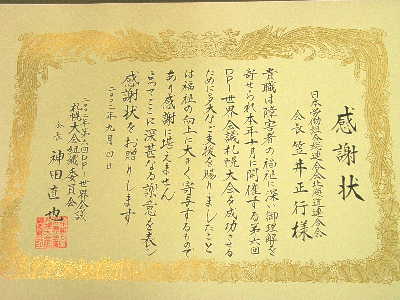 感謝状
日本労働組合総連合会北海道連合会
会長 笠井正行様
貴職は障害者の福祉に深い御理解を
寄せられ本年十月に開催する第六回
DPI世界会議札幌大会を成功させる
ために多大なご支援を賜りましたこと
は福祉の向上に大きく寄与するもので
あり感謝に堪えません
よってここに深甚なる謝意を表し
感謝状をお贈りします
二〇〇二年九月四日
二〇〇二年第六回DPI世界会議
札幌大会組織委員会
会長 神田直也